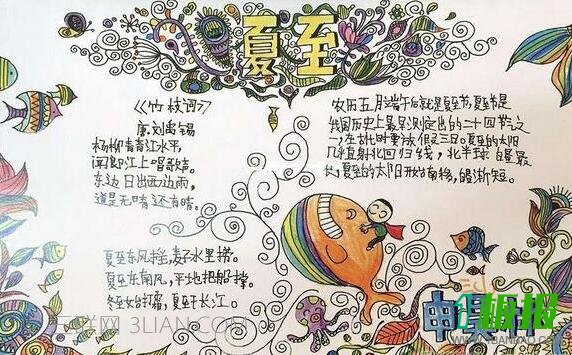 夏至
《竹枝词》
唐刘禹锡
杨柳青青江水平,
闻郎江上唱歌情。
东边日出西边雨,
道是无晴还有晴。
夏至东风摇,麦子水里捞。
夏至东南风,平地把船撑。
冬至打霜,夏至干长江。
农历五月端午后就是夏至节,夏至节是
我国历史上最早测定出的二十四节气之
一,在古代时要放假三日。夏至的太阳
几乎直射北回归线,北半球昼最
长,夏至的太阳开始南移,昼渐短。
3LIAN.COM
板报